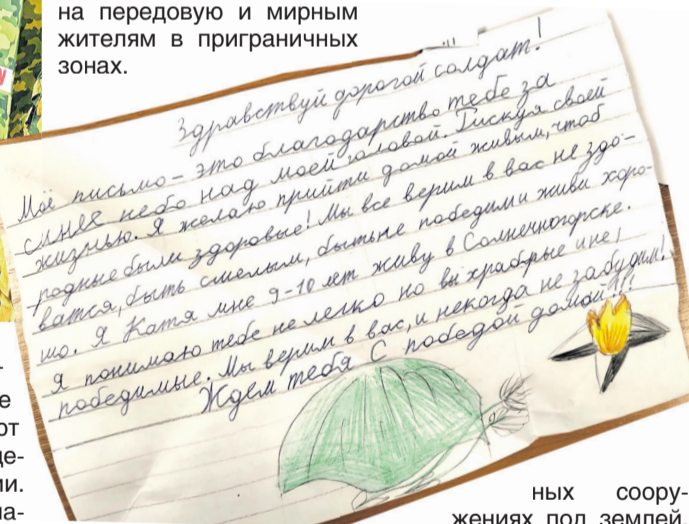 на передовую и мирным
жителям в приграничных
зонах.
Здравствуй дорогой солдат!
Моё письмо – это благодарство тебе за
синее небо над моей головой. Рискуя своей
жизнью. Я желаю прийти домой живым, чтоб
родные были здоровые! Мы все верим в вас не здо-
ватся, быть смелым, быть не победим и живи хоро-
шо. Я Катя мне 9-10 лет живу в Солнечногорске.
Я понимаю тебе не легко но вы храбрые и не
победимые. Мы верим в вас, и некогда не забудим!
Ждем тебя С победой домой!!!
е
от
де-
ии.
на-
ных соору-
жениях под землей